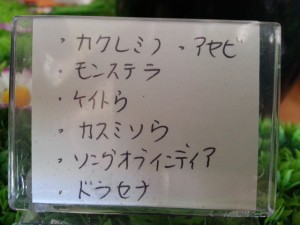 ・カクレミノ ・アセビ
・モンステラ
・ケイトら
・カスミソら
・ソングオブインディア
・ドラセナ